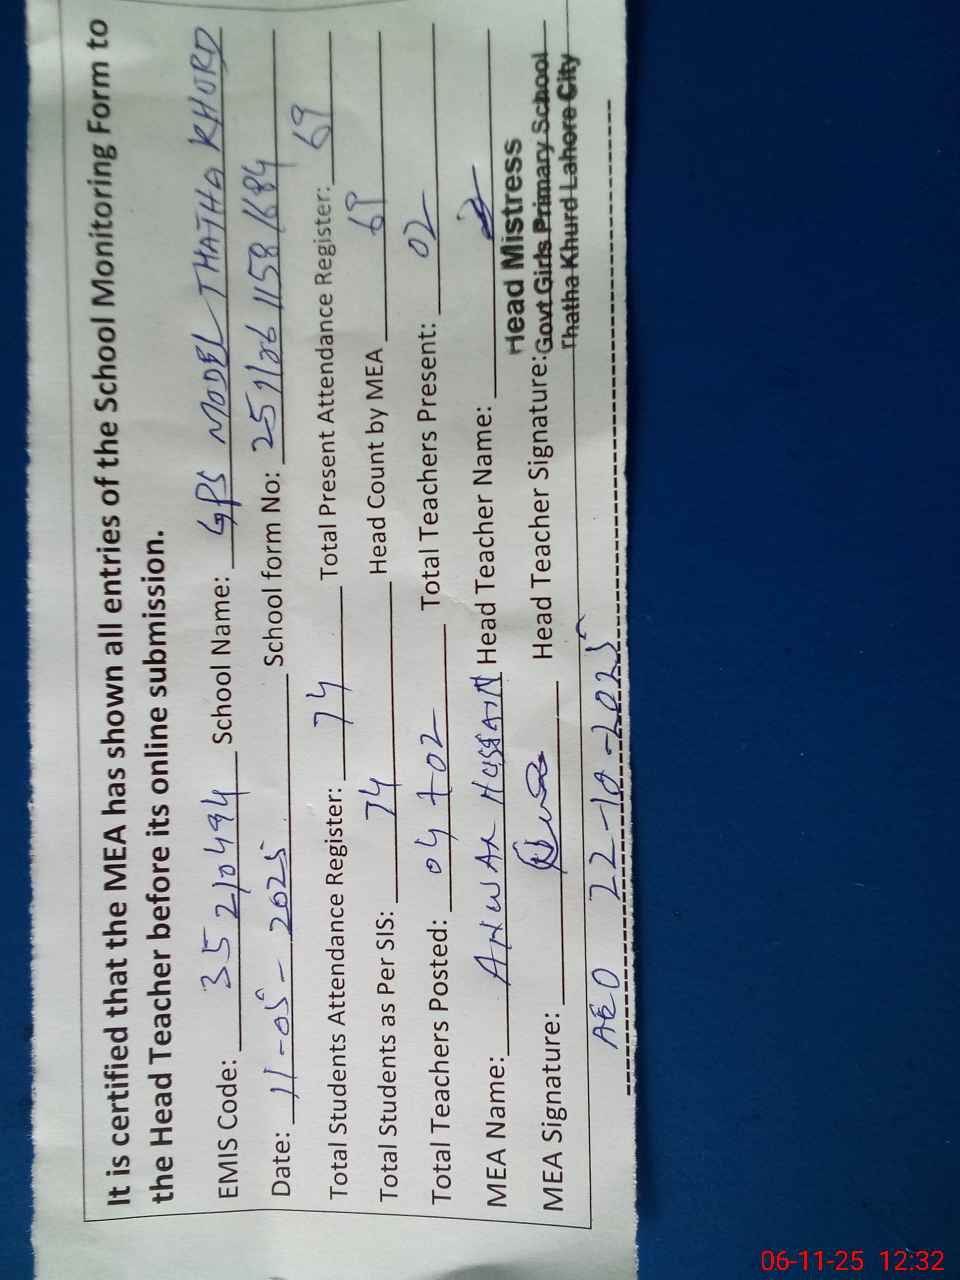 It is certified that the MEA has shown all entries of the School Monitoring Form to
the Head Teacher before its online submission.
EMIS Code: 35210494 School Name: GPS MODEL THATHA KHURD
Date: 11-05-2025 School form No: 25110611581684
Total Students Attendance Register: 74 Total Present Attendance Register: 69
Total Students as Per SIS: 74 Head Count by MEA 69
Total Teachers Posted: 04+02 Total Teachers Present: 02
MEA Name: ANWAR HUSSAIN Head Teacher Name:
MEA Signature: Head Teacher Signature:
Head Mistress
Govt Girls Primary School
Thatha Khurd Lahore City
AEO 22-10-2025
06-11-25 12:32